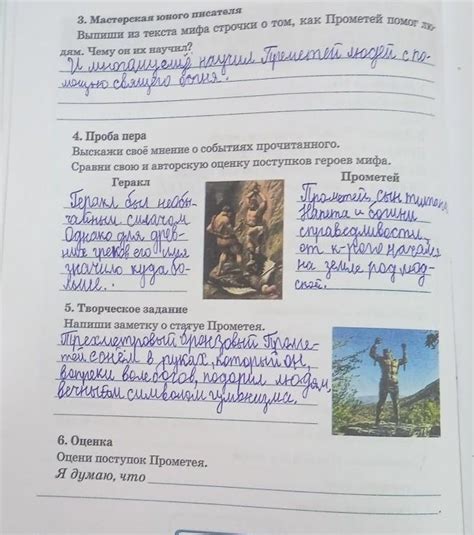 3. Мастерская юного писателя
Выпиши из текста мифа строчки о том, как Прометей помог лю-
дям. Чему он их научил?
И многому ещё научил Прометей людей с по-
мощью священного огня.
4. Проба пера
Выскажи своё мнение о событиях прочитанного.
Сравни свою и авторскую оценку поступков героев мифа.
Геракл
Прометей
Геракл был необы-
чайным силачом
Однако для древ-
них греков его имя
значило куда бо-
льше.
Прометей, сын титана
Иапета и богини
справедливости,
от к-рого начался
на земле род люд-
ской.
5. Творческое задание
Напиши заметку о статуе Прометея.
Трехметровый бронзовый Проме-
тей с огнём в руках, который он,
вопреки воле богов, подарил людям,
вечным символом гуманизма.
6. Оценка
Оцени поступок Прометея.
Я думаю, что